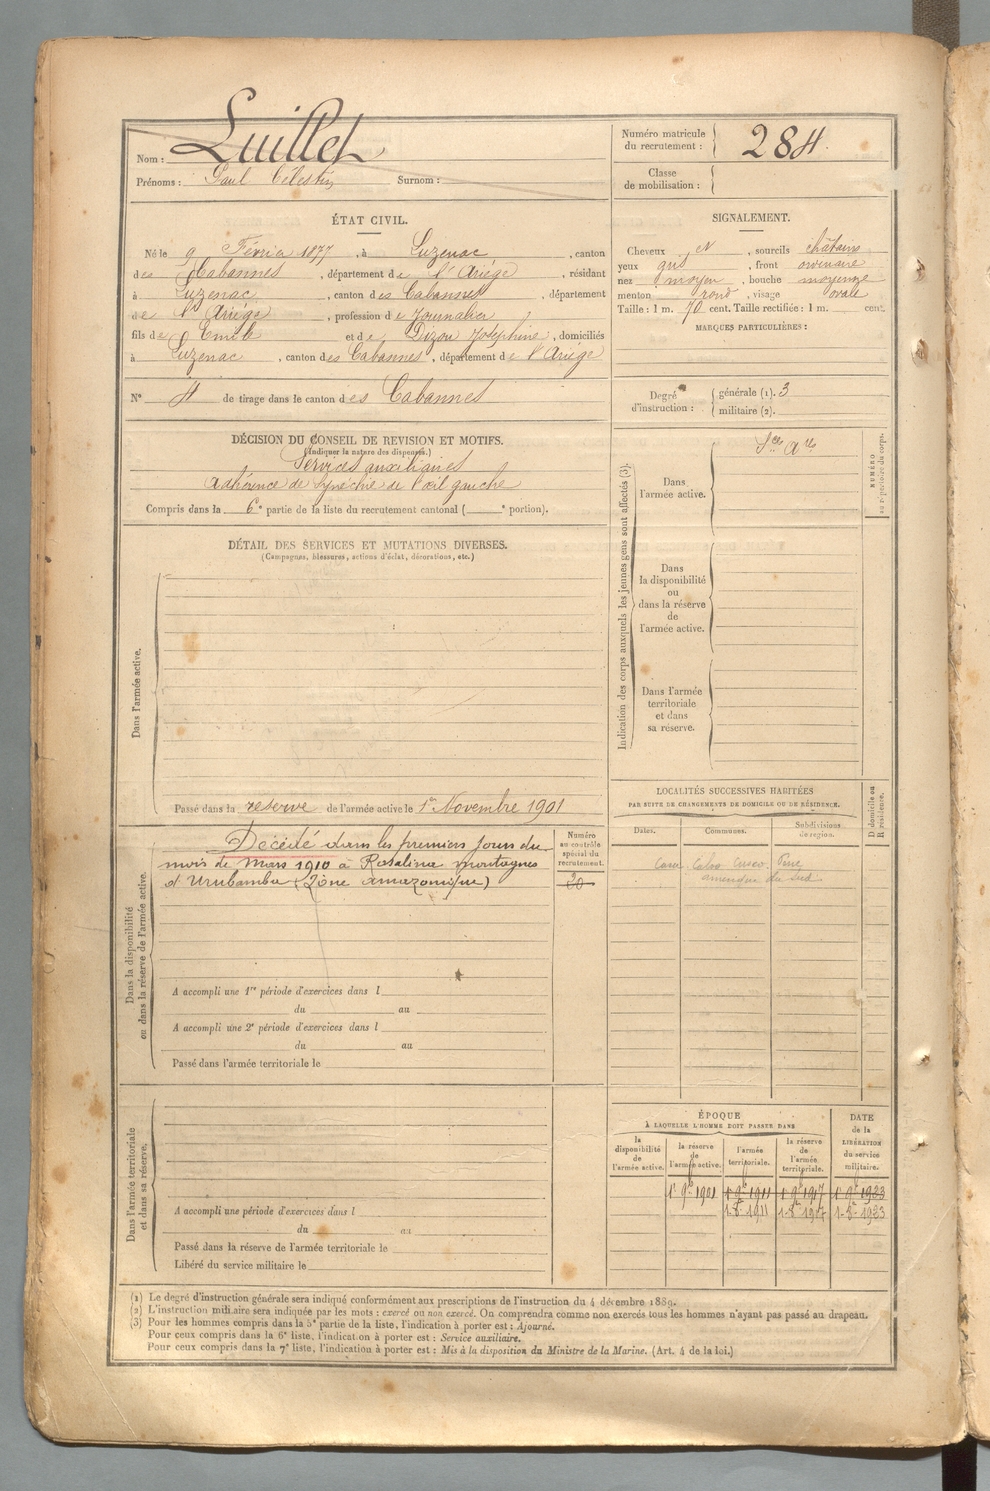 Nom : Luillet
Prénoms : Paul Célestin Surnom :
Numéro matricule du recrutement : 284
Classe de mobilisation :
ÉTAT CIVIL.
Né le 9 Févrie 1877, à Luzenac, canton
des Cabannes, département de l'Ariége, résidant
à Luzenac, canton des Cabannes, département
de l'Ariége, profession de Journalier
fils de Emile et de Dizou Joséphine, domiciliés
à Luzenac, canton des Cabannes, département de l'Ariége
N° 4 de tirage dans le canton des Cabannes
SIGNALEMENT.
Cheveux N, sourcils châtains
yeux gris, front ordinaire
nez moyen, bouche moyenne
menton rond, visage ovale
Taille : 1 m. 70 cent. Taille rectifiée : 1 m. cent.
MARQUES PARTICULIÈRES :
Degré d'instruction : générale (1). 3
militaire (2).
DÉCISION DU CONSEIL DE REVISION ET MOTIFS.
(Indiquer la nature des dispenses.)
Services auxiliaires
Adhérence de synéchie de l'œil gauche
Compris dans la 6e partie de la liste du recrutement cantonal ( e portion).
DÉTAIL DES SERVICES ET MUTATIONS DIVERSES.
(Campagnes, blessures, actions d'éclat, décorations, etc.)
Dans l'armée active.
Passé dans la reserve de l'armée active le 1er Novembre 1901
Indication des corps auxquels les jeunes gens sont affectés (3).
Dans l'armée active.
Sces Ares
NUMÉRO au répertoire du corps.
Dans la disponibilité ou dans la réserve de l'armée active.
Dans l'armée territoriale et dans sa réserve.
Dans la disponibilité ou dans la réserve de l'armée active.
Décédé dans les premiers jours du
mois de Mars 1910 à Rosalina montagnes
d'Urubamba (Zône amazonique)
Numéro au contrôle spécial du recrutement.
20
A accompli une 1re période d'exercices dans l
du au
A accompli une 2e période d'exercices dans l
du au
Passé dans l'armée territoriale le
LOCALITÉS SUCCESSIVES HABITÉES
PAR SUITE DE CHANGEMENTS DE DOMICILE OU DE RÉSIDENCE.
Dates. Communes. Subdivisions de région. D domicile ou R résidence.
Casa Calvo Cusco Pérou
amérique du Sud
Dans l'armée territoriale et dans sa réserve.
A accompli une période d'exercices dans l
du au
Passé dans la réserve de l'armée territoriale le
Libéré du service militaire le
ÉPOQUE
À LAQUELLE L'HOMME DOIT PASSER DANS
la disponibilité de l'armée active. la réserve de l'armée active. l'armée territoriale. la réserve de l'armée territoriale. DATE de la LIBÉRATION du service militaire.
1er 9bre 1901 1er 9bre 1911 1er 9bre 1917 1er 9bre 1923
1-8bre 1911 1-8bre 1917 1-8bre 1923
(1) Le degré d'instruction générale sera indiqué conformément aux prescriptions de l'instruction du 4 décembre 1889.
(2) L'instruction militaire sera indiquée par les mots : exercé ou non exercé. On comprendra comme non exercés tous les hommes n'ayant pas passé au drapeau.
(3) Pour les hommes compris dans la 5e partie de la liste, l'indication à porter est : Ajourné.
Pour ceux compris dans la 6e liste, l'indication à porter est : Service auxiliaire.
Pour ceux compris dans la 7e liste, l'indication à porter est : Mis à la disposition du Ministre de la Marine. (Art. 4 de la loi.)